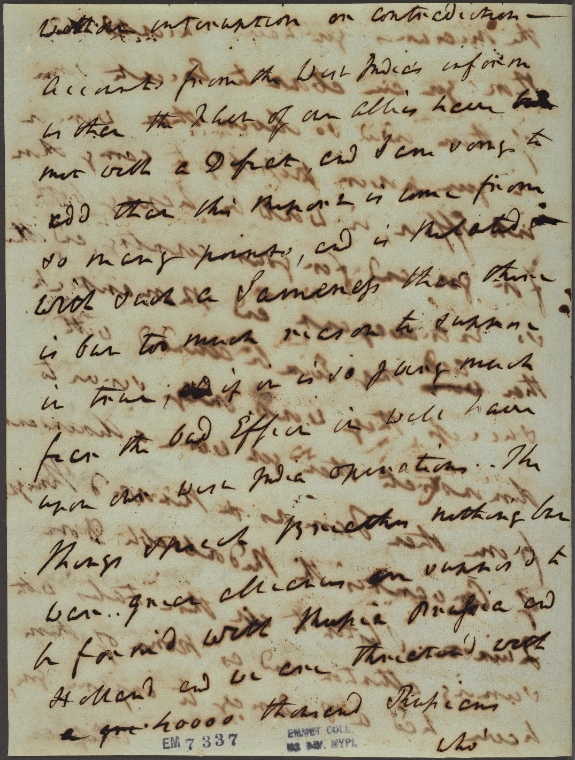 without interruption or contradiction —
Accounts from the West Indies inform
us that the Fleet of our allies have
met with a Defeat, and I am sorry to
add that this Report is come from
so many points, and is Related
with such a Sameness that there
is but too much reason to suppose
it true, if it is so I very much
fear the bad Effect it will have
upon our West India operations.. The
Kings Speech Breathes nothing but
War.. great alliances are suppos'd to
be form'd with Russia Prussia and
Holland and we are threaten'd with
a 40000 thousand Russians
who'
EM 7337
EMMET COLL.
MS DIV. NYPL